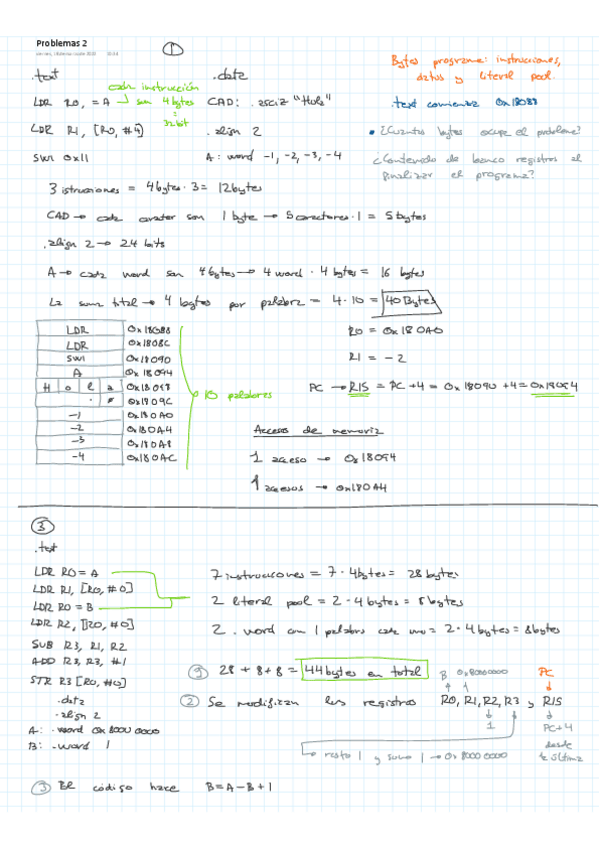 Problemas 2
①
.text
.data
cada instrucción
son 4 bytes
=
32 bit
LDR R0, = A
CAD: .asciz "Hola"
LDR R1, [R0, #4]
.align 2
SWI 0x11
A: word -1, -2, -3, -4
Bytes programa: instrucciones,
datos y literal pool.
.text comienza 0x18088
• ¿Cuantos bytes ocupa el problema?
¿Contenido de banco registros al
finalizar el programa?
3 istrucciones = 4 bytes · 3 = 12 bytes
CAD → cada caracter son 1 byte → 5 caracteres · 1 = 5 bytes
.align 2 → 24 bits
A → cada word son 4 bytes → 4 word · 4 bytes = 16 bytes
La suma total → 4 bytes por palabra = 4 · 10 = 40 Bytes
LDR 0x18088
LDR 0x1808C
SWI 0x18090
A 0x18094
H o l a 0x18098
0x1809C
-1 0x180A0
-2 0x180A4
-3 0x180A8
-4 0x180AC
10 palabras
R0 = 0x180A0
R1 = -2
PC → R15 = PC + 4 = 0x18090 + 4 = 0x18094
Accesos de memoria
1 acceso → 0x18094
1 accesos → 0x180A4
③
.text
LDR R0 = A
LDR R1, [R0, #0]
LDR R0 = B
LDR R2, [R0, #0]
SUB R3, R1, R2
ADD R3, R3, #1
STR R3 [R0, #0]
.data
.align 2
A: .word 0x80000000
B: .word 1
7 instrucciones = 7 · 4 bytes = 28 bytes
2 literal pool = 2 · 4 bytes = 8 bytes
2 .word con 1 palabra cada uno = 2 · 4 bytes = 8 bytes
28 + 8 + 8 = 44 bytes en total
B 0x80000000 PC
② Se modifican los registros R0, R1, R2, R3 y R15
1
PC+4
desde
la última
resto 1 y sumo 1 → 0x80000000
③ El código hace B = A - B + 1